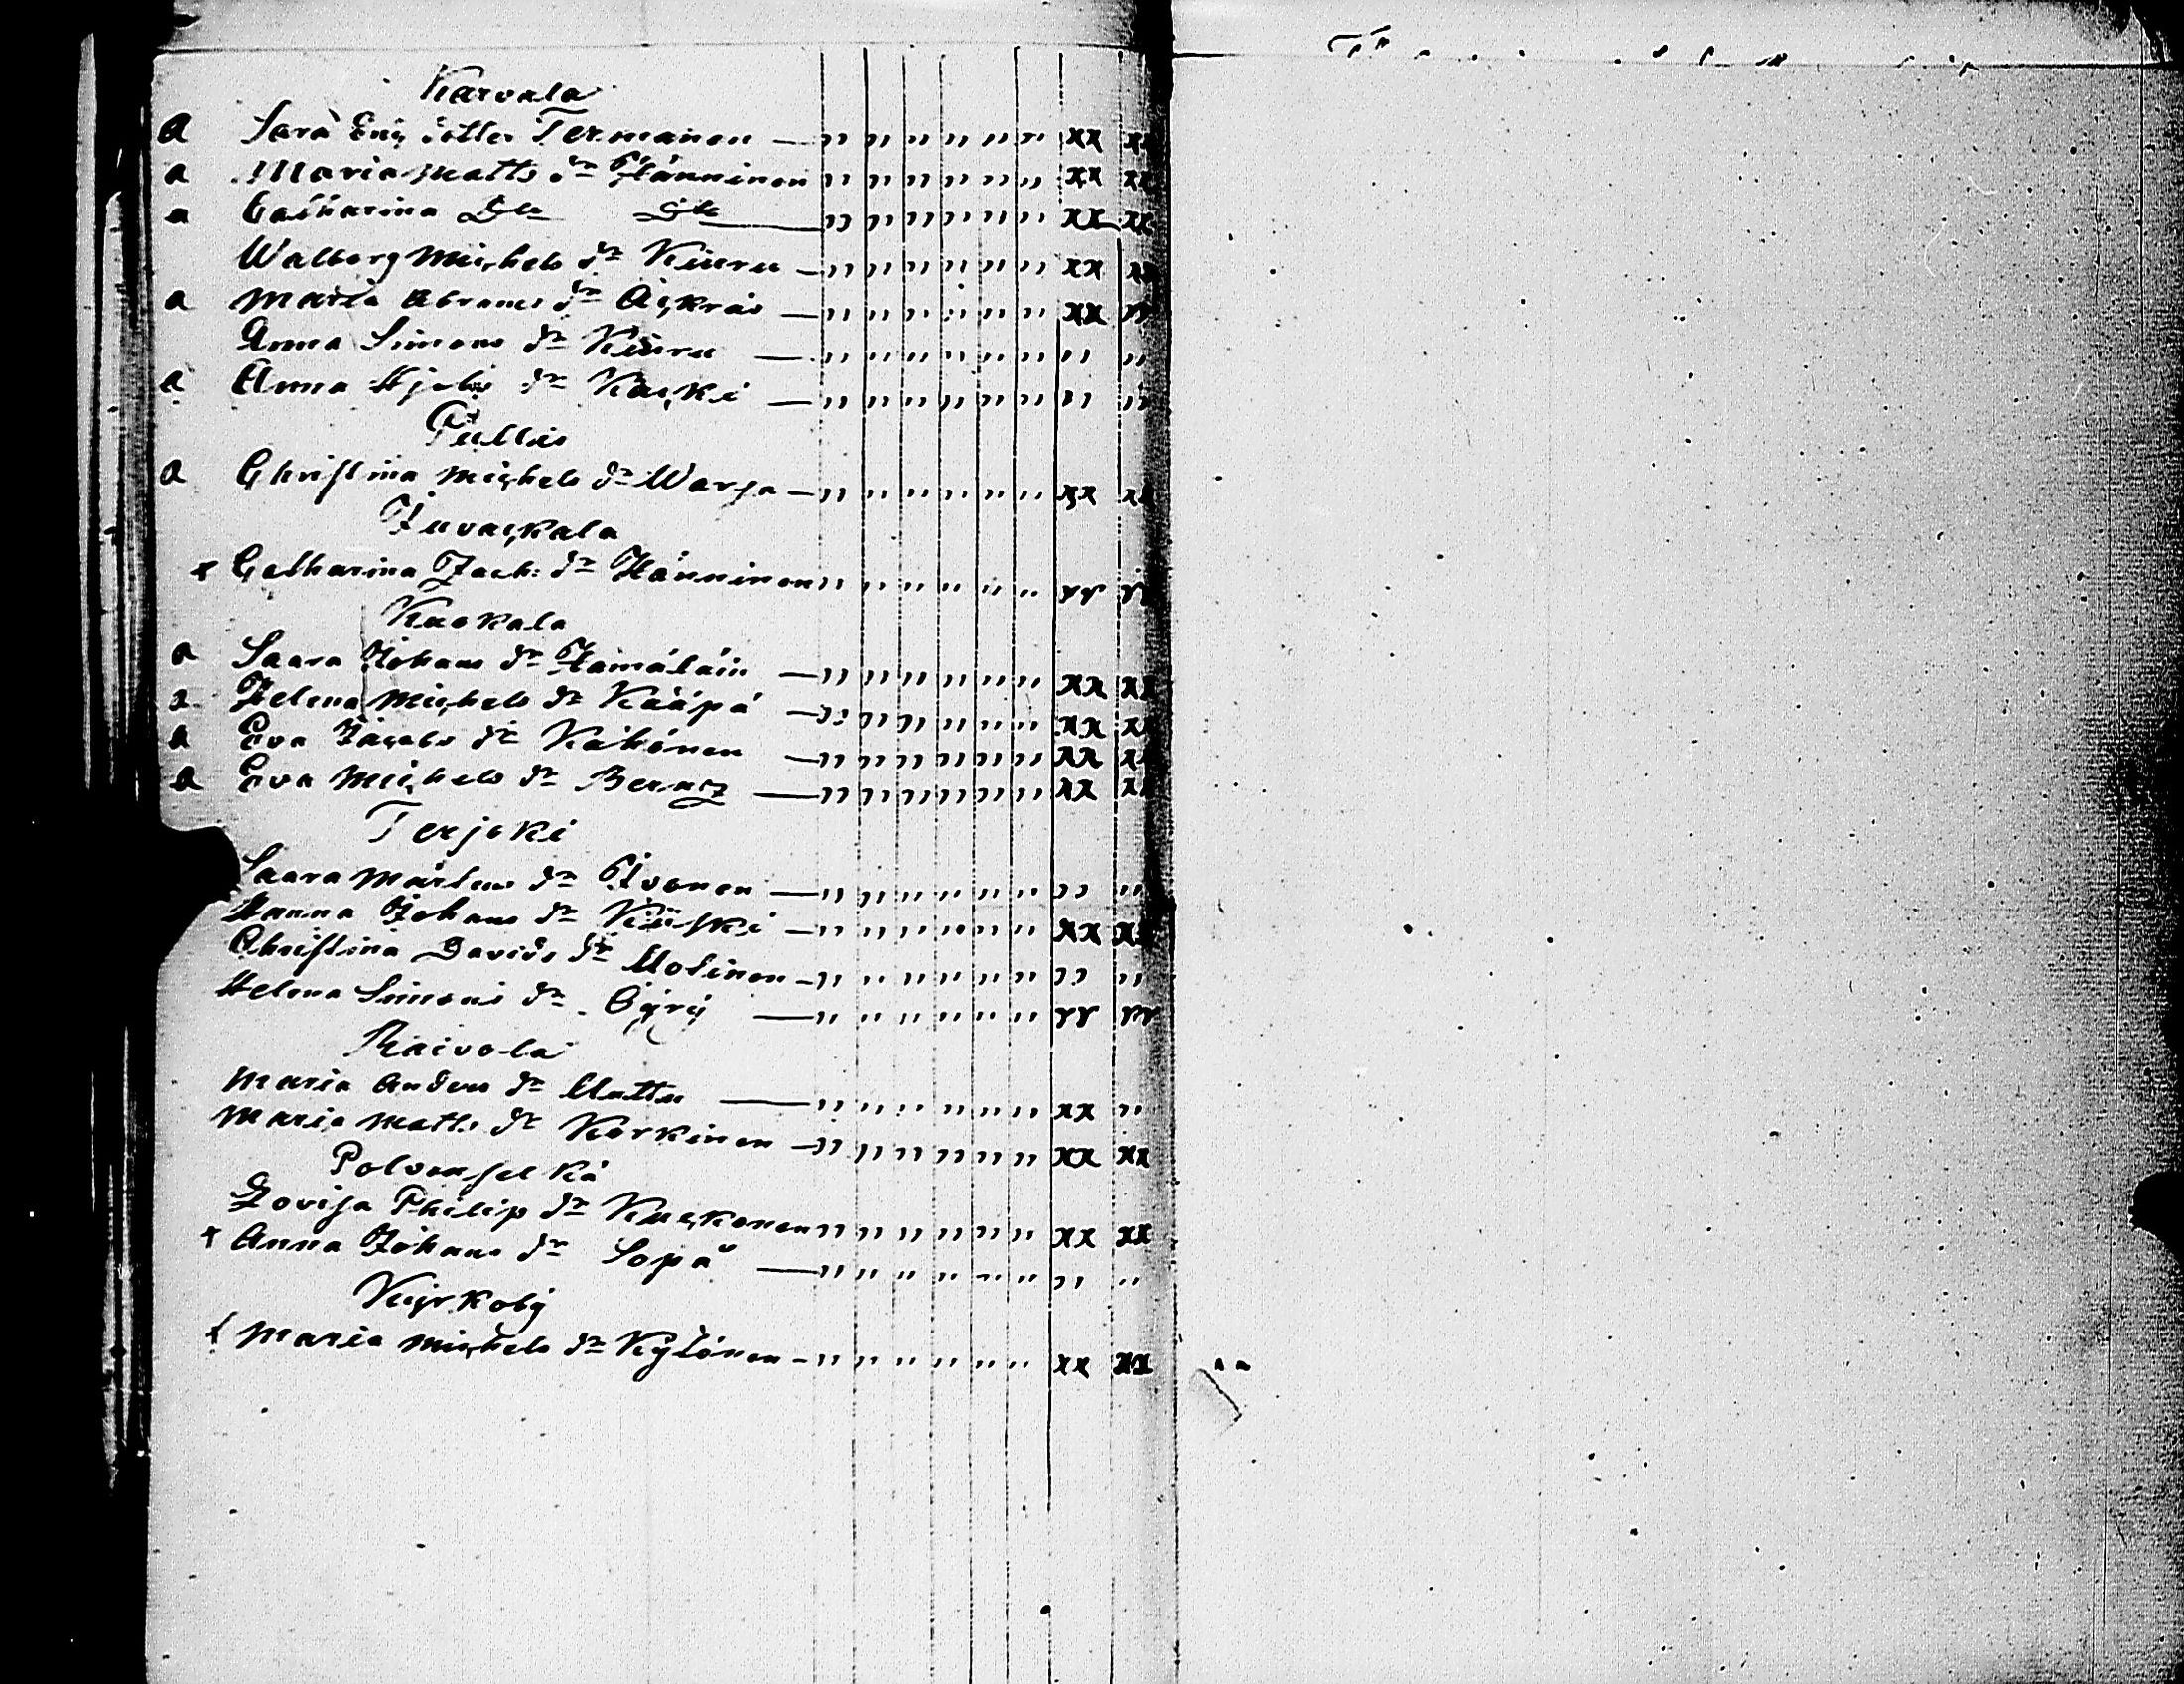 Karvala
a Sara Eriç dotter Termänen — " " " " " " xx xx
a Maria Matts dr Hänninen " " " " " " xx xx
a Catharina Dto Dto " " " " " " xx xx
Walborg Michels dr Kiuru — " " " " " " xx xx
a Maria Abrams dr Äçkräs — " " " " " " xx "
Anna Simons dr Kiuru — " " " " " " " "
a Anna dr Kaçki — " " " " " " " "
Pullis
a Christina Michels dr Warsa — " " " " " " xx xx
Juvaçkala
x Catharina Zach: dr Hänninen " " " " " " rr rr
Kuokala
a Saara Johans dr Hämäläin — " " " " " " xx xx
a Helena Michels dr Kääpä — " " " " " " xx xx
a Eva Jacobs dr Kähönen — " " " " " " xx xx
a Eva Michels dr Berncz — " " " " " " xx xx
Terjoki
Saara Mårtens dr Ivonen — " " " " " " " "
Hanna Johans dr — " " " " " " xx xx
Christina Davids dr Uotinen — " " " " " " " "
Helena Simons dr — " " " " " " rr rr
Raivola
Maria Anders dr Uuttu — " " " " " " xx "
Maria Matts dr Korkinen — " " " " " " xx xx
Polvenselkä
Lovisa Philip dr Kuçkonen " " " " " " xx xx
x Anna Johans dr Sopa — " " " " " " " "
Kyrkoby
x Maria Michels dr Kylönen — " " " " " " xx xx